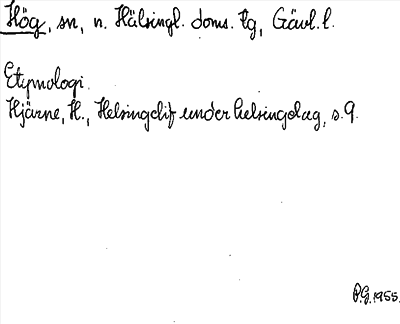 Hög, sn, n. Hälsingl. doms. tg, Gävl. l.
Etymologi.
Hjärne, H., Helsingelif under helsingelag, s. 9.
P.G. 1955.